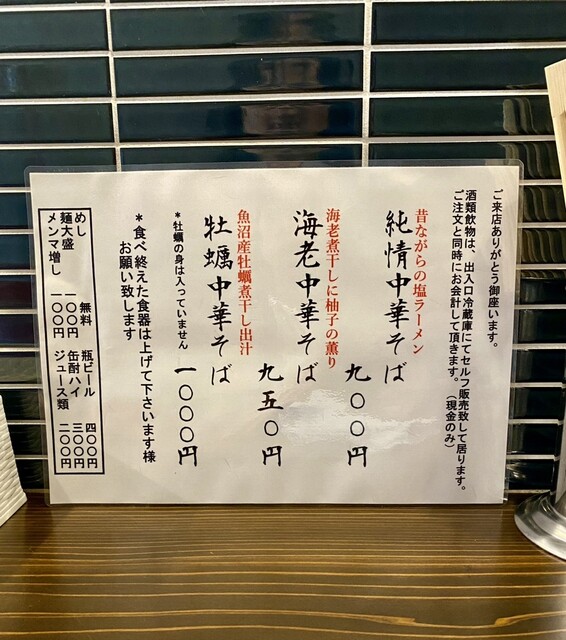 ご来店ありがとう御座います。
酒類飲物は、出入口冷蔵庫にてセルフ販売致して居ります。
ご注文と同時にお会計して頂きます。（現金のみ）
昔ながらの塩ラーメン
純情中華そば　九〇〇円
海老煮干しに柚子の薫り
海老中華そば　九五〇円
魚沼産牡蠣煮干し出汁
牡蠣中華そば　一〇〇〇円
＊牡蠣の身は入っていません
＊食べ終えた食器は上げて下さいます様
お願い致します
めし　無料
麺大盛　一〇〇円
メンマ増し　一〇〇円
瓶ビール　四〇〇円
缶酎ハイ　三〇〇円
ジュース類　二〇〇円